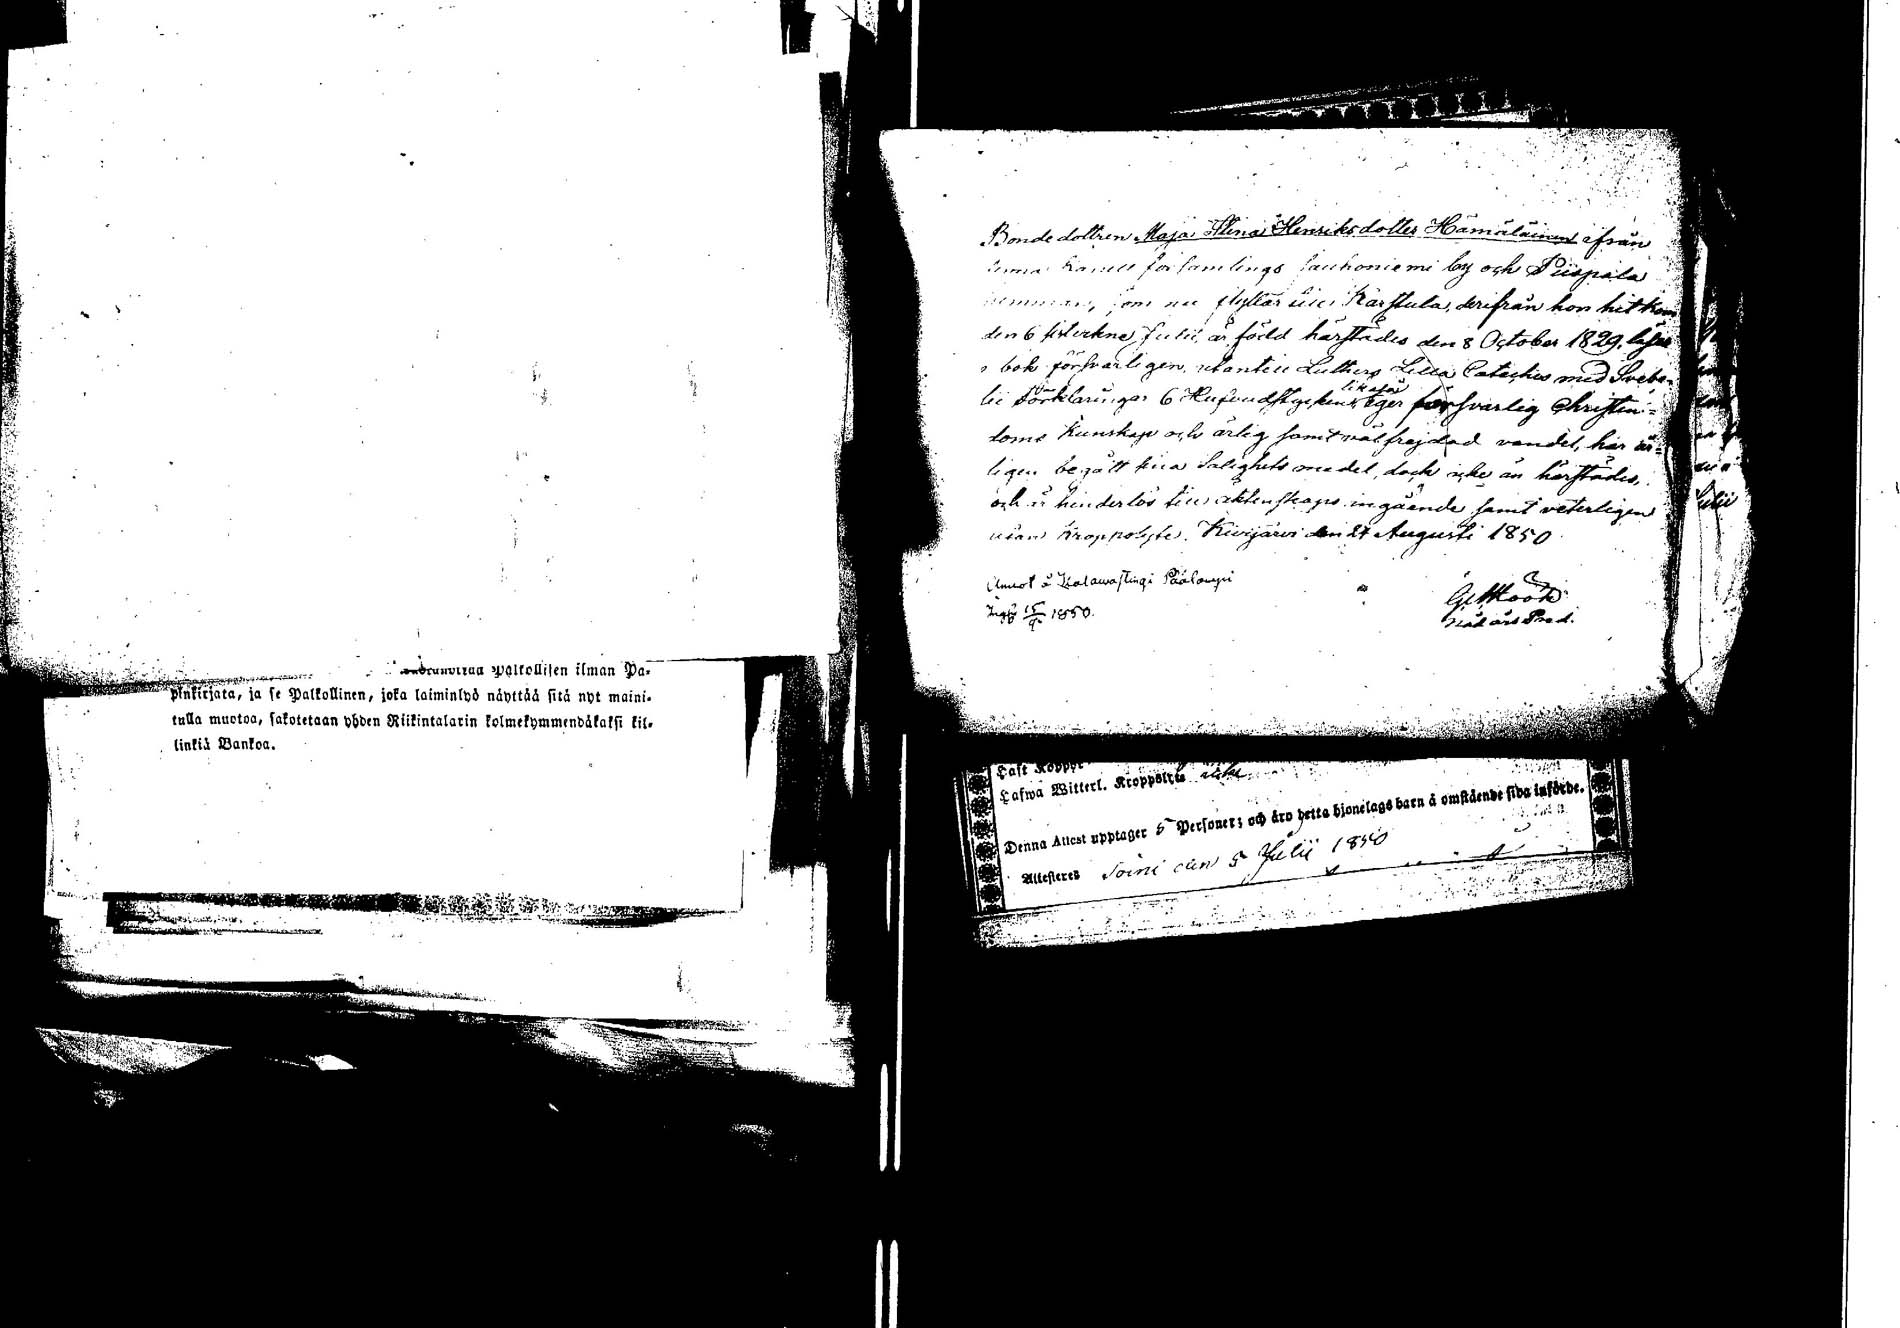 Palkollisen ilman Pa-
pinkirjata, ja se Palkollinen, joka laiminlyö näyttää sitä nyt maini-
tulla muotoa, sakotetaan yhden Riikintalarin kolmekymmendäkaksi kil-
linkiä Bankoa.
Bonde dottren Maja Stina Henriksdotter Hämäläinen ifrån
denna Kapell församlings Jauhoniemi by och Piispala
hemman, som nu flyttar till Karstula, derifrån hon hit kom
den 6 sistvekne Julii, är född härstädes den 8 October 1829, läser
i bok försvarligen, utantill Luthers Lilla Cateches med Svebe-
lii Förklaringar 6 Hufvudstycken, likaså eger försvarlig Christen-
doms Kunskap och ärlig samt väl frejdad vandel, har är-
ligen begått sina Salighets medel, dock icke än härstädes,
och är hinderlös till äktenskaps ingående samt veterligen
utan Kroppslyte. Kivijärvi den 24 Augusti 1850
Annot å Kalawastingi Pääloupi
15/9 1850.
Julii
Haft Koppor
Hafwa Witterl. Kroppslyte icke
Denna Attest upptager 5 Personer; och äro detta hjonelags barn å omstående sida införde.
Attesteres Soini den 5 Julii 1850